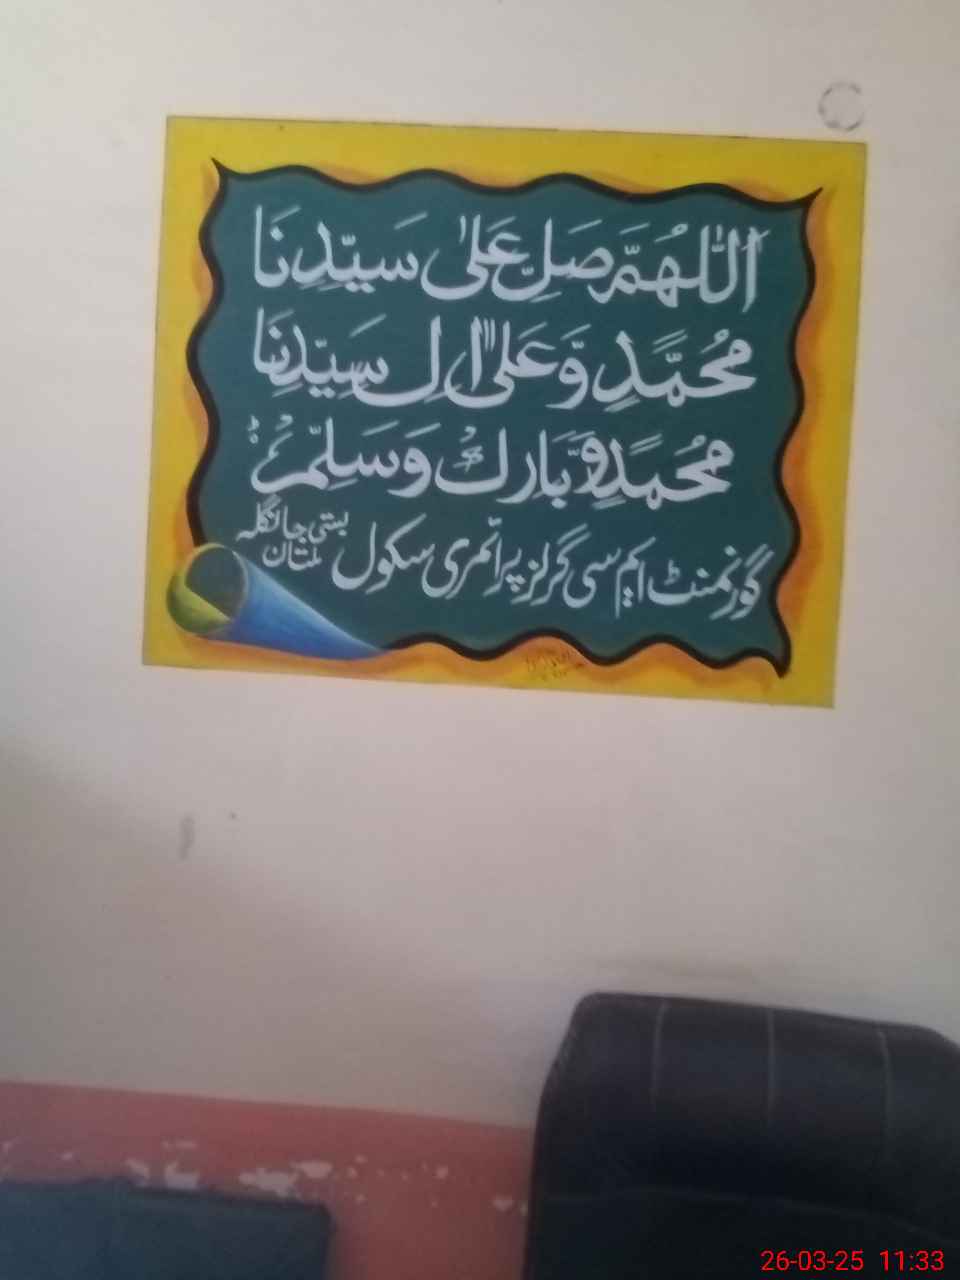 اَللّٰهُمَّ صَلِّ عَلٰى سَيِّدِنَا
مُحَمَّدٍ وَّعَلٰٓى اٰلِ سَيِّدِنَا
مُحَمَّدٍ وَّبَارِكْ وَسَلِّمْ
گورنمنٹ ایم سی گرلز پرائمری سکول بستی جانگلہ
ملتان
26-03-25 11:33